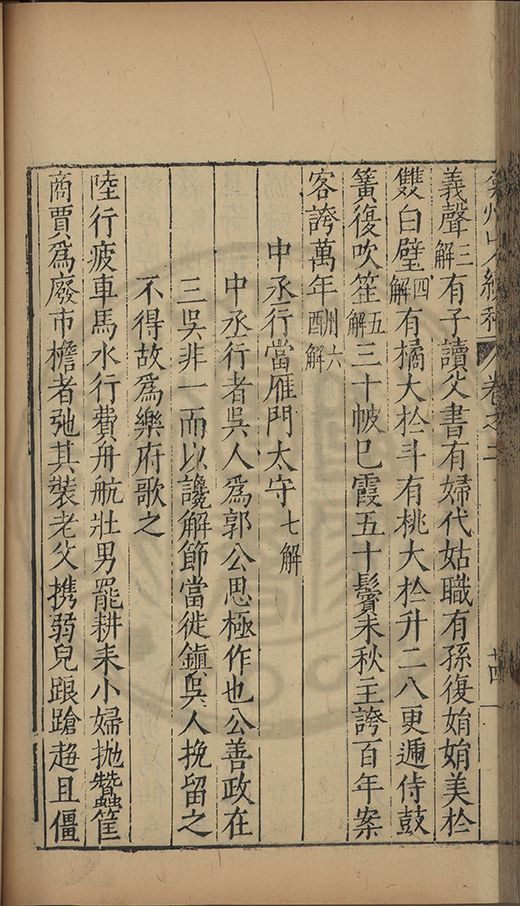 卷之二
義聲三解有子讀父書有婦代姑職有孫復娟娟美於
雙白璧四解有橘大於斗有桃大於升二八更遞侍鼓
簧復吹笙五解三十帔巳霞五十鬢未秋主誇百年案
客誇萬年酬六解
中丞行當雁門太守七解
中丞行者吳人爲郭公思極作也公善政在
三吳非一而以讒解節當徙鎮吳人挽留之
不得故爲樂府歌之
陸行疲車馬水行費舟航壯男罷耕耒小婦抛蠶筐
商賈爲廢市檐者弛其裝老父携弱兒踉蹌趋且僵